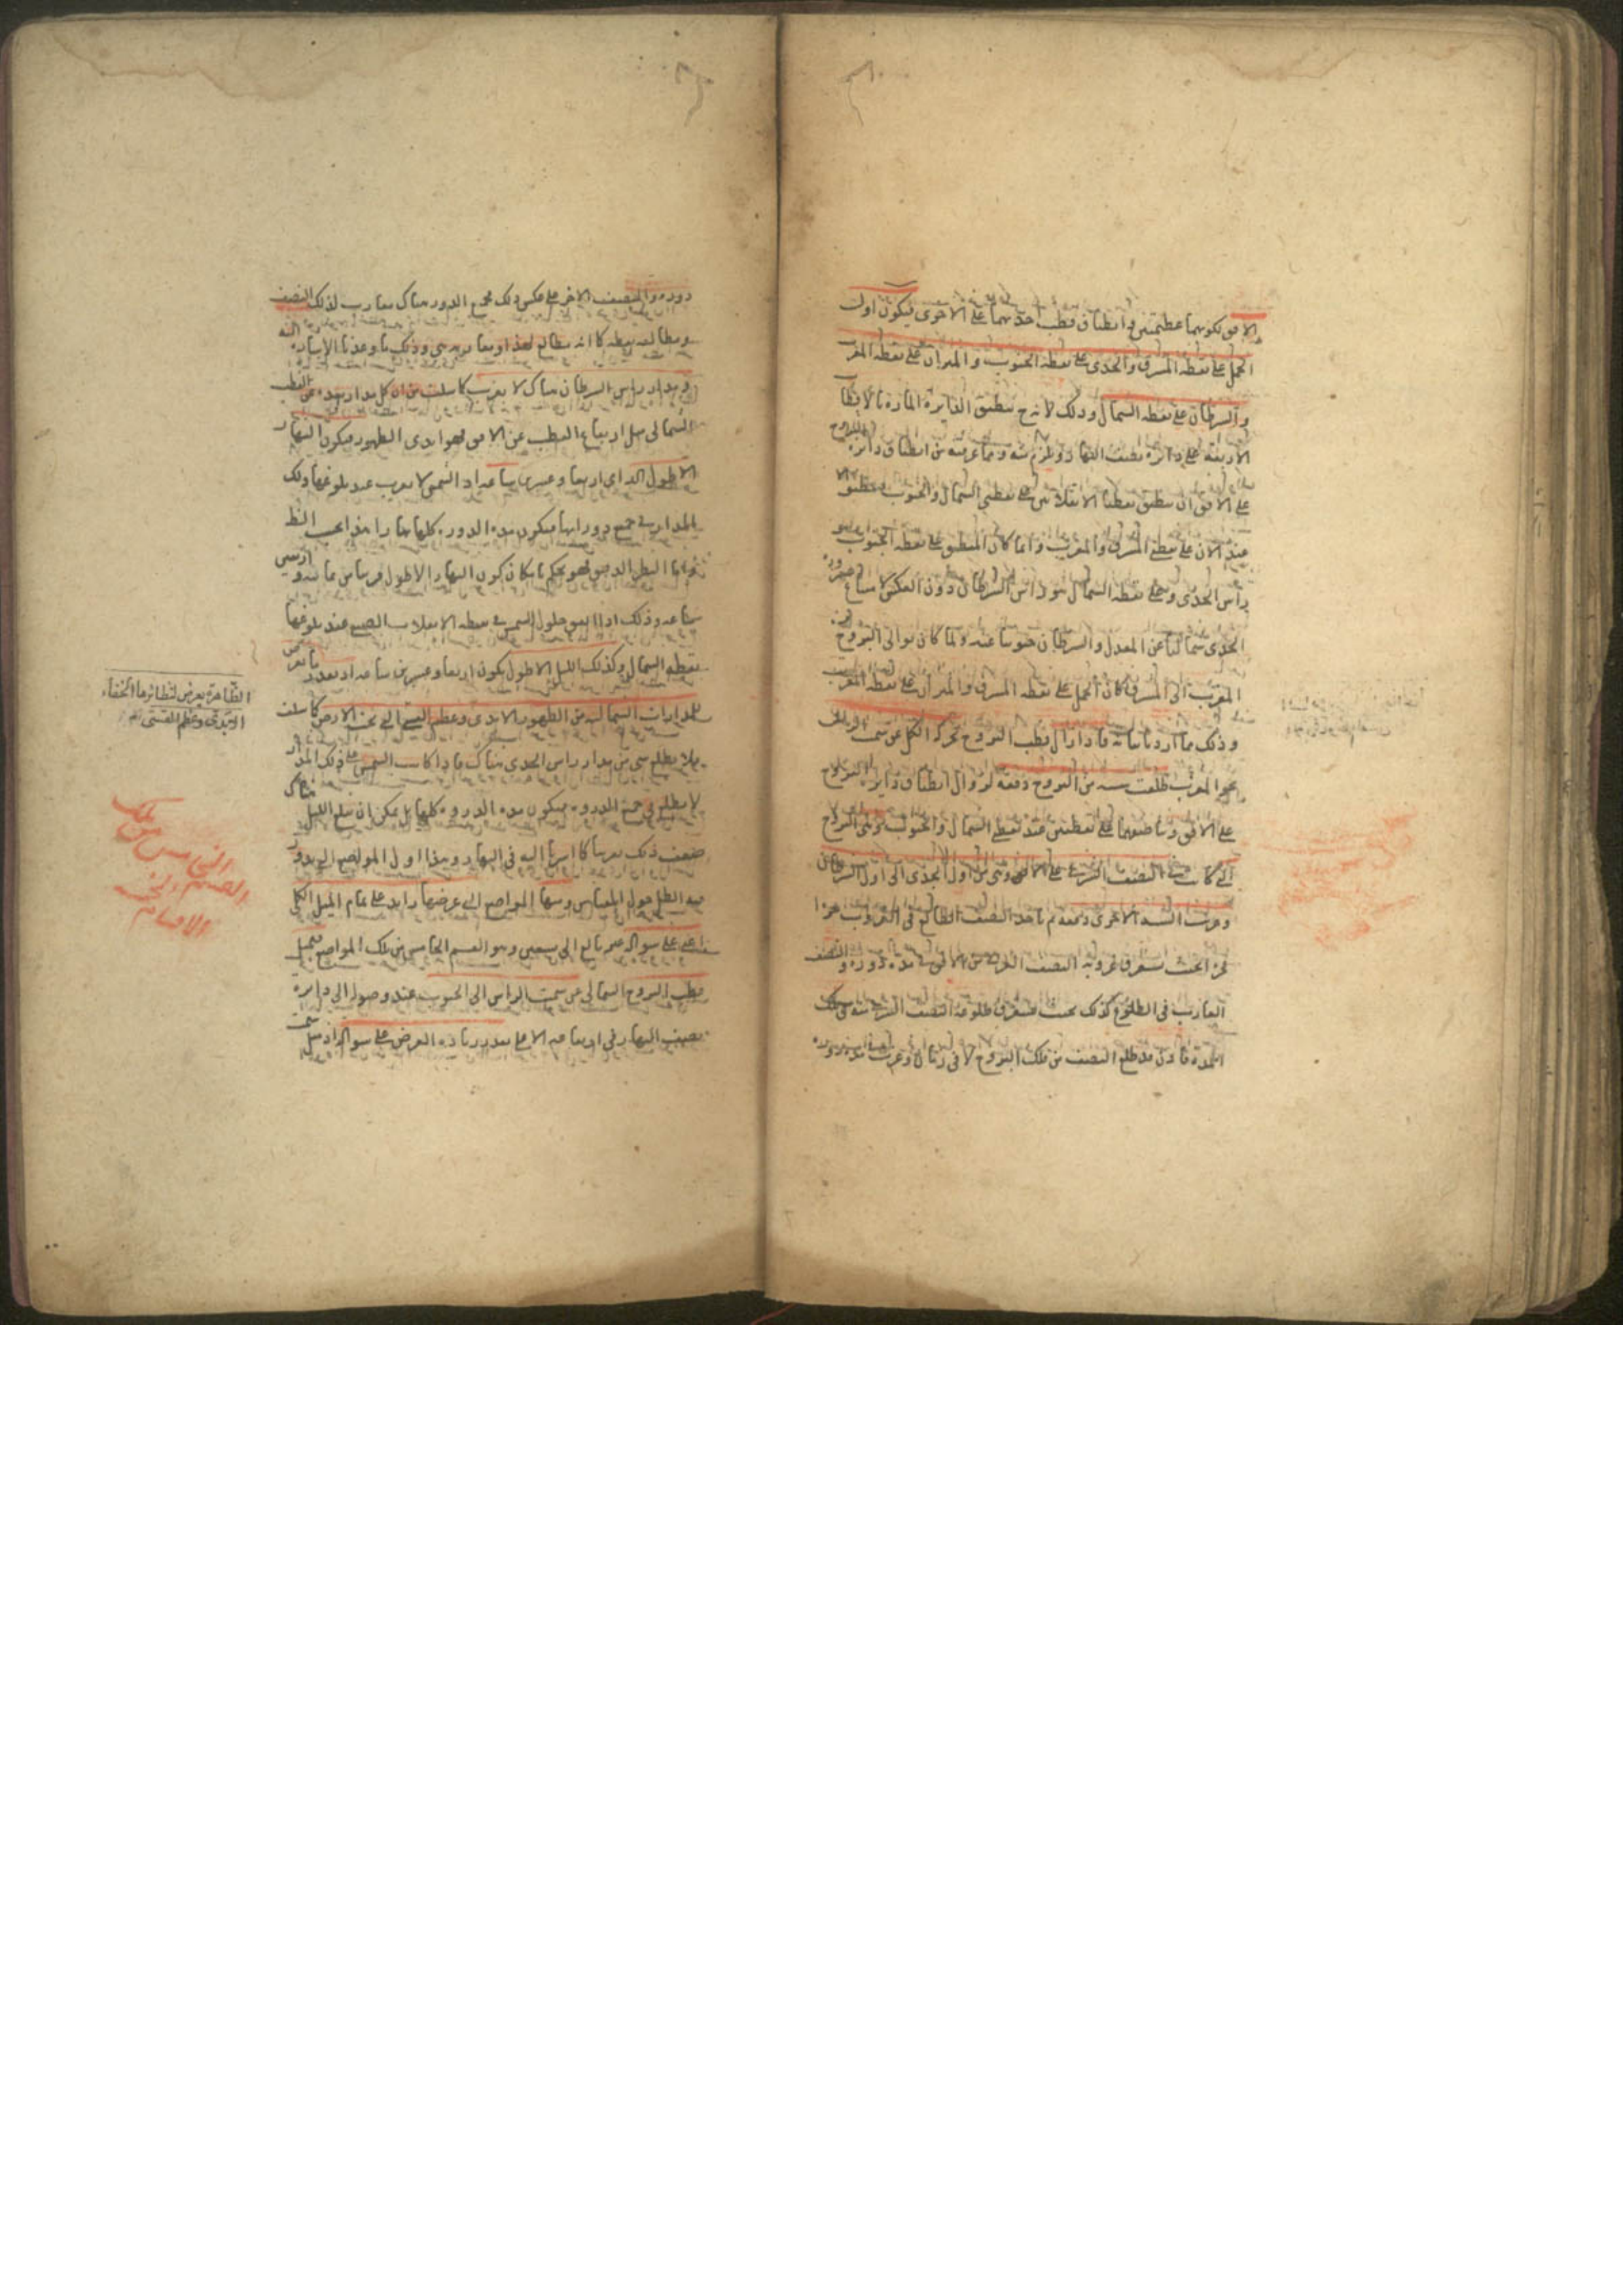 الافق لكونهما عظيمتين وانطباق قطب احديهما على الاخرى فيكون اول
الحمل على نقطة المشرق والجدى على نقطة الجنوب والميزان على نقطة المغرب
والسرطان على نقطة الشمال وذلك لانه ح ينطبق الدائرة المارة بالاقطاب
الاربعة على دائرة نصف النهار ويلزم منه ومما عرفته من انطباق دائرة البروج
على الافق ان ينطبق نقطتا الانقلابين على نقطتى الشمال والجنوب
على نقطتى المشرق والمغرب وانما كان المنطبق على نقطة الجنوب هو
رأس الجدى وعلى نقطة الشمال هو رأس السرطان دون العكس لامتناع صيرورة
الجدى شماليا عن المعدل والسرطان جنوبيا عنه ولما كان توالى البروج من
المغرب الى المشرق كان الحمل على نقطة المشرق والميزان على نقطة المغرب
وذلك ما اردنا بيانه فاذا زال قطب البروج بحركة الكل عن سمت الرأس
نحو المغرب طلعت ستة من البروج دفعة لزوال انطباق دائرة البروج
على الافق وتقاطعهما على نقطتين عند نقطتى الشمال والجنوب
كانت فى النصف الشرقى على الافق وهى من اول الجدى الى اول السرطان
وغربت الستة الاخرى دفعة ثم ياخذ النصف الطالع فى الغروب جزءا
جزءا بحيث يستغرق غروبه النصف الغربى من الافق فى مدة دورة والنصف
الغارب فى الطلوع كذلك بحيث يستغرق طلوعه النصف الشرقى منه فى تلك
المدة فاذن قد طلع النصف من فلك البروج لا فى زمان وغرب فى دورة
دورة والنصف الاخر على عكس ذلك فجميع الدور هناك مغارب لذلك النصف
ومطالعه نقطة كما انه مطالع لهذا ومغاربه هى وذلك ما وعدنا الاشارة اليه
ومدار رأس السرطان هناك لا يغرب كما سلف من ان كل مدار بعده عن القطب
الشمالى مثل ارتفاع القطب عن الافق فهو ابدى الظهور فيكون النهار
الاطول اربعا وعشرين ساعة اذ الشمس لا يغرب عند بلوغها ذلك
المدار فى جميع دورانها فيكون مدة الدورة كلها نهارا هذا بحسب النظر
واما النظر الدقيق فهو يحكم بامكان كون النهار الاطول قريبا من ثمانية واربعين
ساعة وذلك اذا اتفق حلول الشمس فى نقطة الانقلاب الصيفى عند بلوغها
نقطة الشمال وكذلك الليل الاطول يكون اربعا وعشرين ساعة اذ بقدر ما يعرض
للمدارات الشمالية من الظهور الابدى وعظم القسى التى تحت الارض كما سلف
فلا يطلع شى من مدار رأس الجدى هناك فاذا كانت الشمس على ذلك المدار
لا يطلع فى جميع الدورة فيكون مدة الدورة كلها ليلا بل يمكن ان يبلغ الليل هناك
ضعف ذلك تقريبا كما اشرنا اليه فى النهار وهذا اول المواضع التى يدور
فيه الظل حول المقياس ومنها المواضع التى عرضها زايد على تمام الميل الكلى
على سو الد غير بالغ الى تسعين وهو القسم الخامس من تلك المواضع فيميل
قطب البروج الشمالى عن سمت الراس الى الجنوب عند وصوله الى دايرة
نصف النهار فى ارتفاعه الاعلى بقدر زيادة العرض على سو الد اذ ميل سمت
الظاهرة يعرض لنظائرها الخفاء
الابدى وعظم القسى
القسم الخامس من تلك
الاقسام